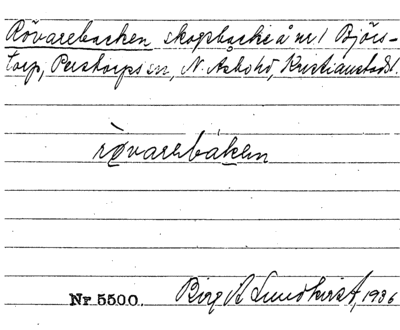 Rövarebacken skogsbacke å nr 1 Björs-
torp, Perstorps sn, N. Åsbo hd, Kristianstads l.
rövarebáken
Nr 5500. Birg A Lundkvist, 1936